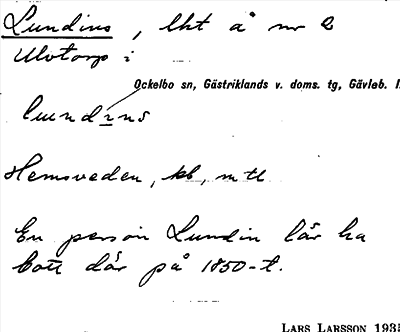 Lundins, lht å nr 2
Ulvtorp i
Ockelbo sn, Gästriklands v. doms. tg, Gävleb. l
lundins
Hemsveden, kb, mtl
En person Lundin lär ha
bott där på 1850-t.
LARS LARSSON 193